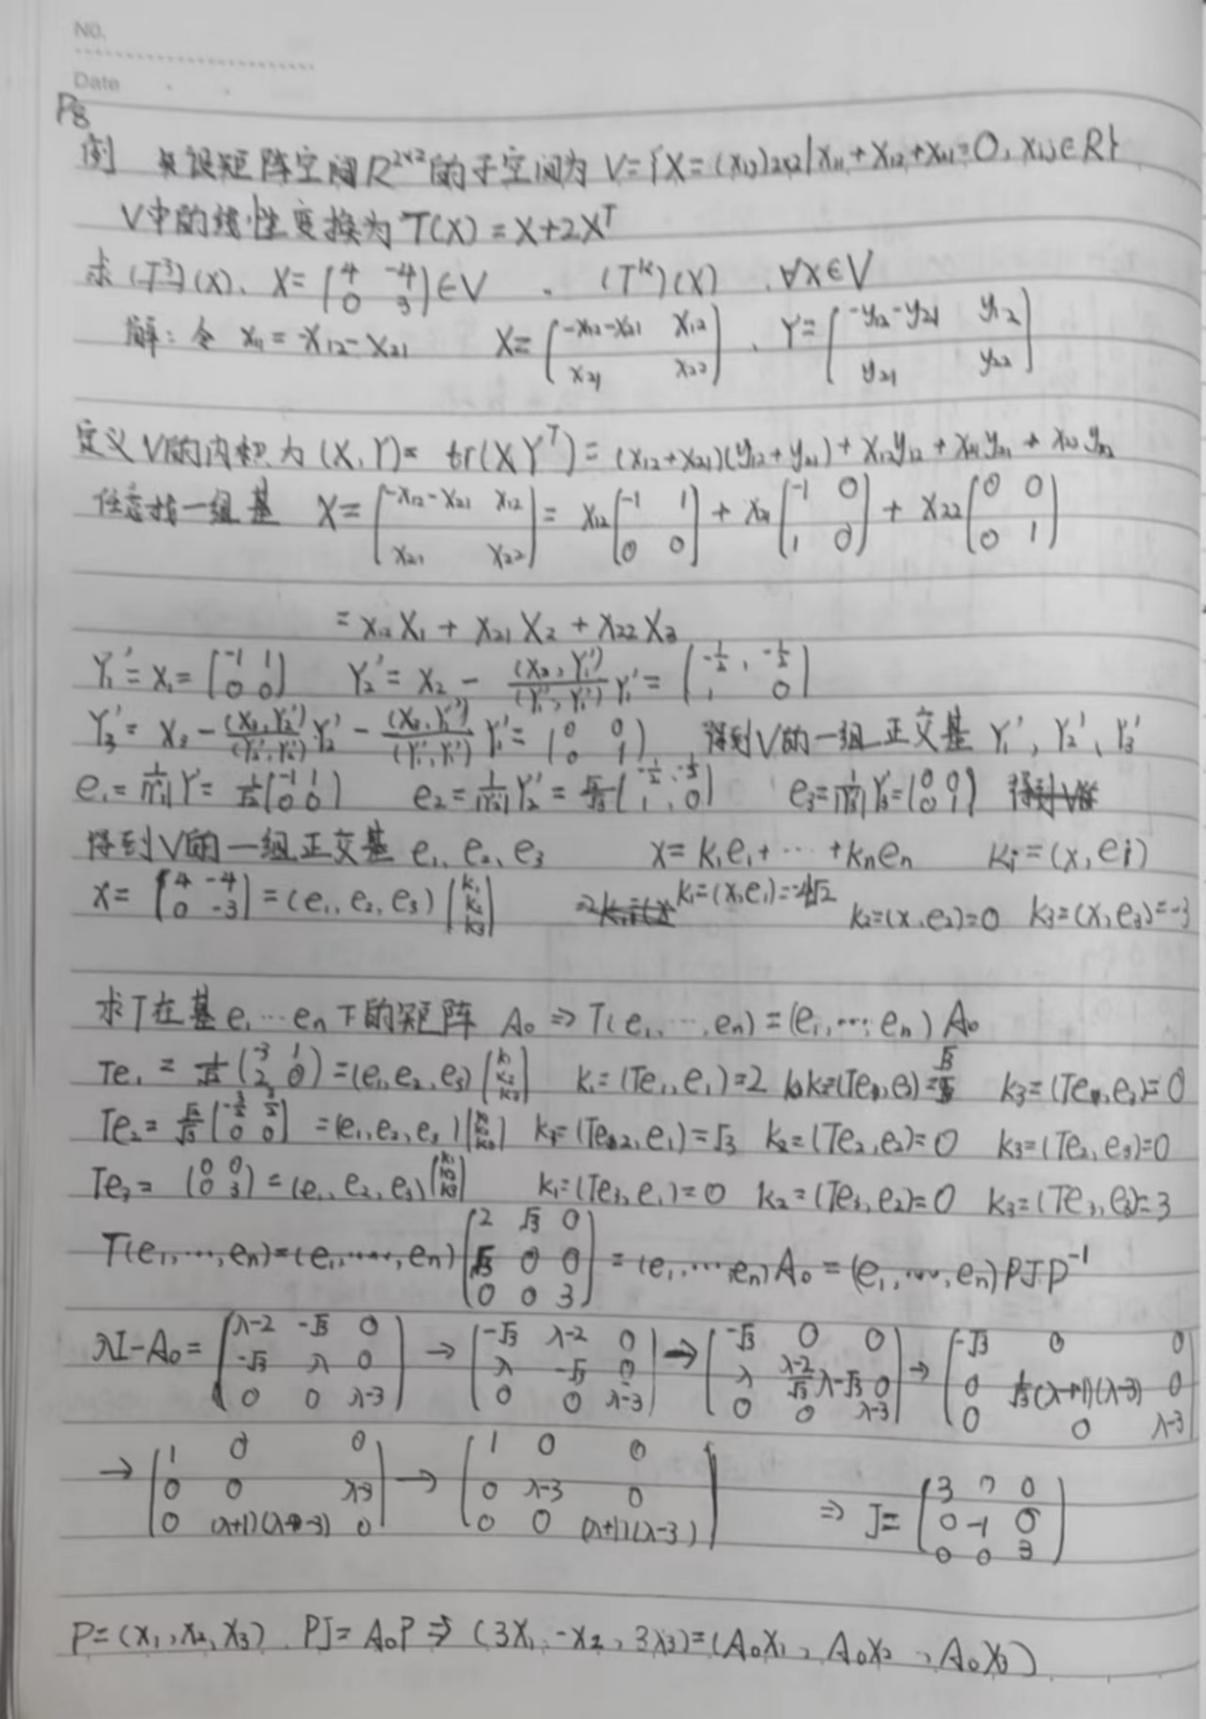 No.
Date
P8
例 设矩阵空间R^{2×2}的子空间为 V={X=(x_{ij})_{2×2}|x_{11}+x_{12}+x_{21}=0, x_{ij}∈R}
V中的线性变换为 T(X)=X+2X^T
求(T^3)(X)、X=[4 -4; 0 3]∈V . (T^k)(X) .∀X∈V
解:令 x_{11}=-x_{12}-x_{21} X=[-x_{12}-x_{21} x_{12}; x_{21} x_{22}]、Y=[-y_{12}-y_{21} y_{12}; y_{21} y_{22}]
定义V的内积为(X,Y)=tr(XY^T)=(x_{12}+x_{21})(y_{12}+y_{21})+x_{12}y_{12}+x_{21}y_{21}+x_{22}y_{22}
任意找一组基 X=[-x_{12}-x_{21} x_{12}; x_{21} x_{22}]=x_{12}[-1 1; 0 0]+x_{21}[-1 0; 1 0]+x_{22}[0 0; 0 1]
=x_{12}X_1+x_{21}X_2+x_{22}X_3
Y_1'=X_1=[-1 1; 0 0] Y_2'=X_2-\frac{(X_2,Y_1')}{(Y_1',Y_1')}Y_1'=[-1/2, -1/2; 1 0]
Y_3'=X_3-\frac{(X_3,Y_2')}{(Y_2',Y_2')}Y_2'-\frac{(X_3,Y_1')}{(Y_1',Y_1')}Y_1'=[0 0; 0 1], 得到V的一组正交基 Y_1', Y_2'、Y_3'
e_1=\frac{1}{|Y_1'|}Y_1'=\frac{1}{√2}[-1 1; 0 0] e_2=\frac{1}{|Y_2'|}Y_2'=\frac{√2}{√3}[-1/2, -1/2; 1, 0] e_3=\frac{1}{|Y_3'|}Y_3'=[0 0; 0 1]
得到V的一组正交基 e_1、e_2、e_3 X=k_1e_1+⋯+k_ne_n k_i=(x,ei)
X=[4 -4; 0 -3]=(e_1,e_2,e_3)[k_1; k_2; k_3] k_1=(x,e_1)=-4√2 k_2=(x,e_2)=0 k_3=(x,e_3)=-3
求T在基e_1⋯e_n下的矩阵 A_0 ⇒T(e_1,⋯,e_n)=(e_1,⋯,e_n)A_0
Te_1=\frac{1}{√2}[-3 1; 2 0]=(e_1,e_2,e_3)[k_1; k_2; k_3] k_1=(Te_1,e_1)=2 k_3=(Te_1,e_3)=0
Te_2=\frac{√2}{√3}[-3/2 3/2; 0 0]=(e_1,e_2,e_3)[k_1; k_2; k_3] k_1=(Te_2,e_1)=√3 k_2=(Te_2,e_2)=0 k_3=(Te_2,e_3)=0
Te_3=[0 0; 0 3]=(e_1,e_2,e_3)[k_1; k_2; k_3] k_1=(Te_3,e_1)=0 k_2=(Te_3,e_2)=0 k_3=(Te_3,e_3)=3
T(e_1,⋯,e_n)=(e_1,⋯,e_n)[2 √3 0; √3 0 0; 0 0 3]=(e_1,⋯,e_n)A_0=(e_1,⋯,e_n)PJP^{-1}
λI-A_0=[λ-2 -√3 0; -√3 λ 0; 0 0 λ-3]→[-√3 λ-2 0; λ -√3 0; 0 0 λ-3]→[-√3 0 0; λ \frac{λ-2}{√3}λ-√3 0; 0 0 λ-3]→[-√3 0 0; 0 \frac{1}{√3}(λ+1)(λ-3) 0; 0 0 λ-3]
→[1 0 0; 0 0 λ-3; 0 (λ+1)(λ-3) 0]→[1 0 0; 0 λ-3 0; 0 0 (λ+1)(λ-3)] ⇒J=[3 0 0; 0 -1 0; 0 0 3]
P=(x_1,x_2,x_3) PJ=A_0P⇒(3X_1,-X_2,3X_3)=(A_0X_1,A_0X_2,A_0X_3)